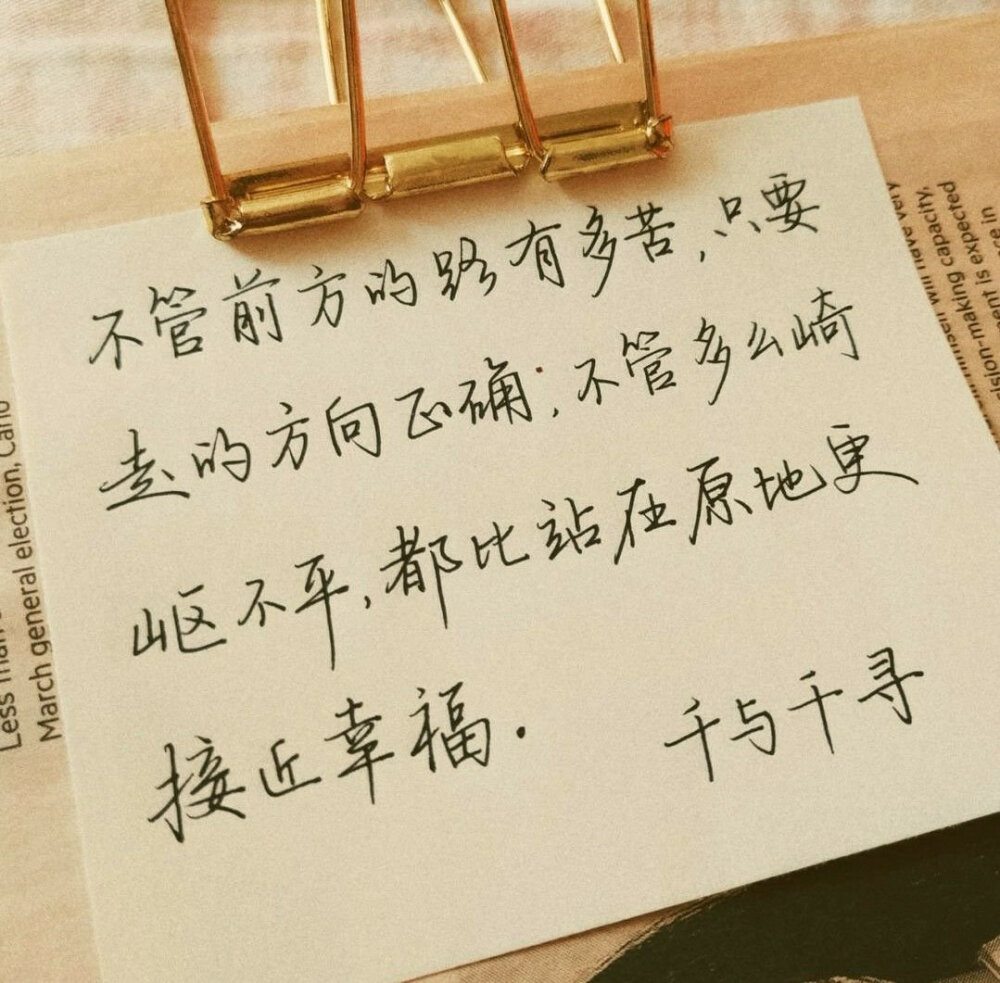 不管前方的路有多苦,只要
走的方向正确;不管多么崎
岖不平,都比站在原地更
接近幸福.
千与千寻
March general election, Cano
will have very
capacity,
vision-making expected
is expected
in